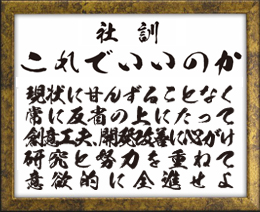 社訓
これでいいのか
現状に甘んずることなく
常に反省の上にたって
創意工夫、開発改善に心がけ
研究と努力を重ねて
意欲的に全進せよ